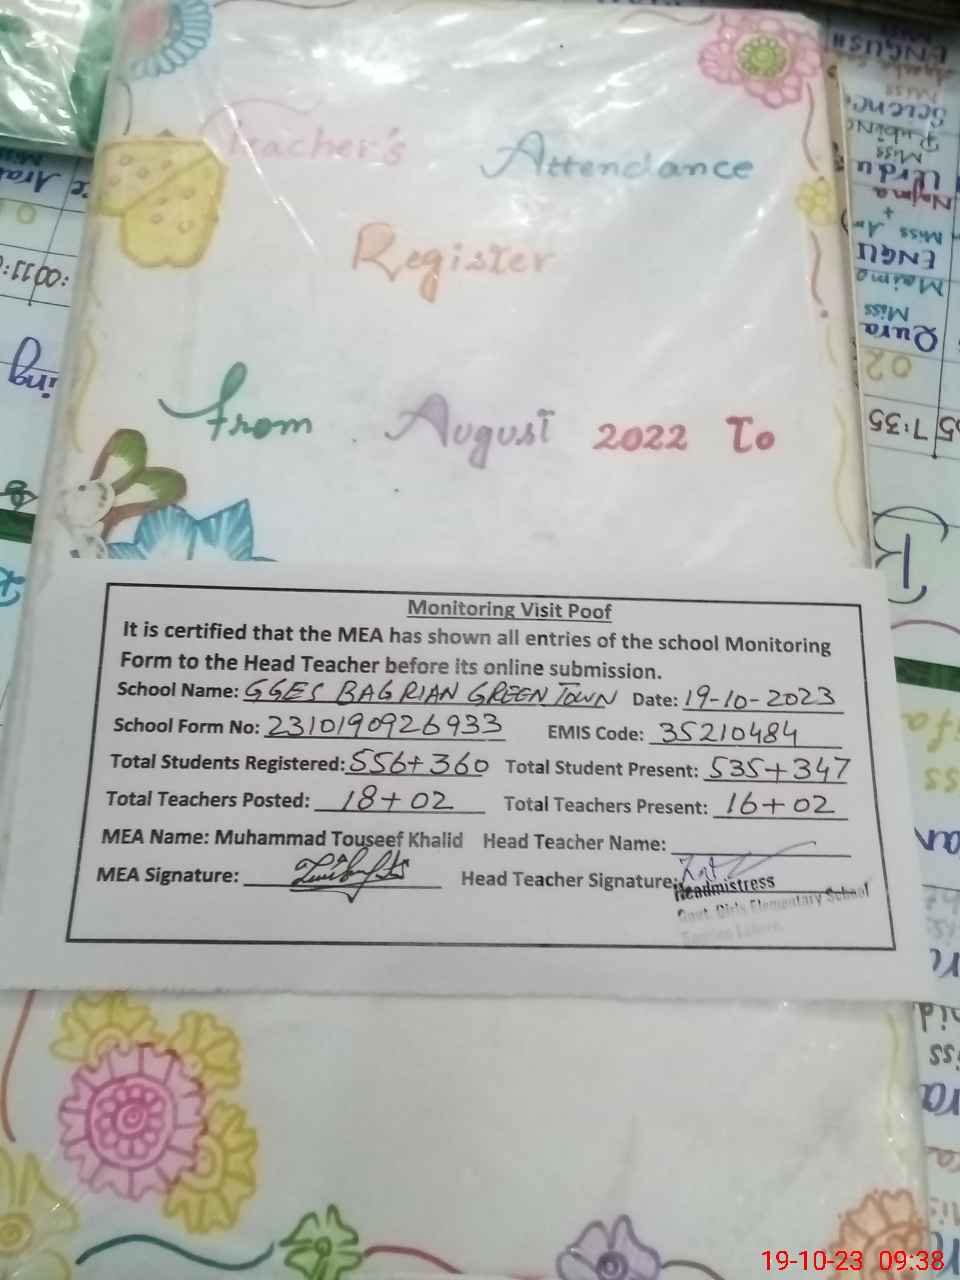 Teacher's Attendance
Register
From August 2022 To
Monitoring Visit Poof
It is certified that the MEA has shown all entries of the school Monitoring
Form to the Head Teacher before its online submission.
School Name: GGES BAGRIAN GREEN TOWN Date: 19-10-2023
School Form No: 2310190926933 EMIS Code: 35210484
Total Students Registered: 556+360 Total Student Present: 535+347
Total Teachers Posted: 18+02 Total Teachers Present: 16+02
MEA Name: Muhammad Touseef Khalid Head Teacher Name:
MEA Signature: Head Teacher Signature:
Headmistress
Govt. Girls Elementary School
ENGLISH
Miss
Science
Rubina
Miss
Urdu
Najma
+
Miss
ENGLI
Maima
Miss
Qura
02
7:35
ing
19-10-23 09:38